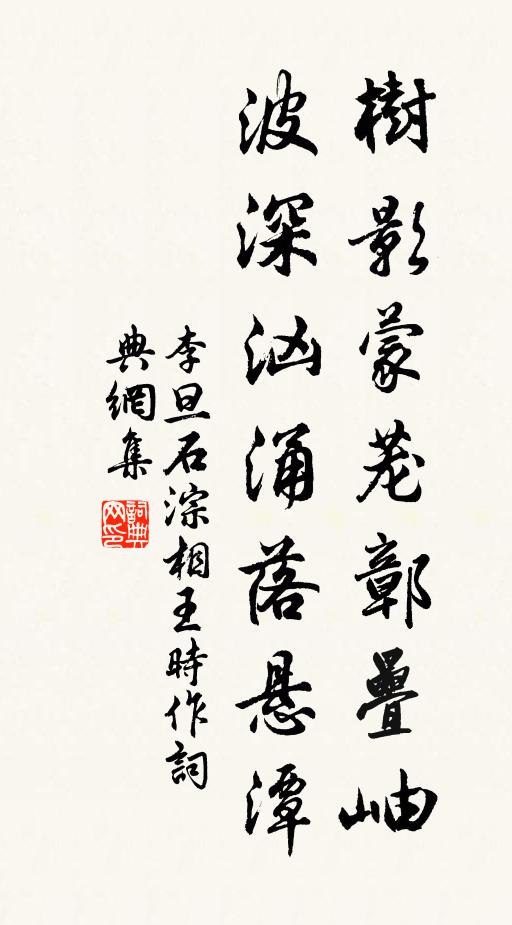 樹影蒙茏鄣疊岫
波深汹涌落悬潭
李旦石淙相王時作詞
典網集
詞典
网印